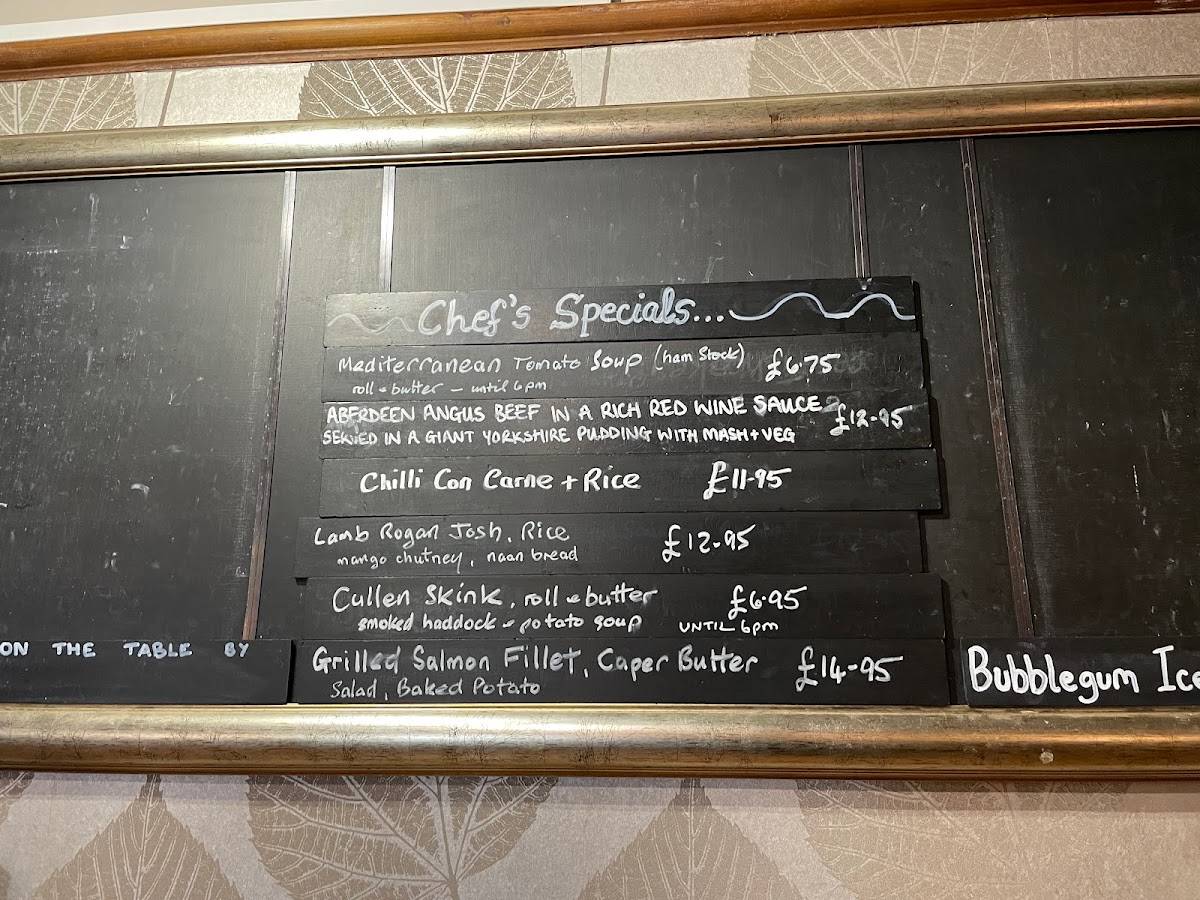 Chef's Specials...
Mediterranean Tomato Soup (ham Stock) £6.75
roll & butter - until 6pm
ABERDEEN ANGUS BEEF IN A RICH RED WINE SAUCE £12-95
SERVED IN A GIANT YORKSHIRE PUDDING WITH MASH + VEG
Chilli Con Carne + Rice £11-95
Lamb Rogan Josh, Rice £12-95
mango chutney, naan bread
Cullen Skink, roll & butter £6.95
smoked haddock & potato soup UNTIL 6pm
ON THE TABLE BY
Grilled Salmon Fillet, Caper Butter £14-95
Salad, Baked Potato
Bubblegum Ice